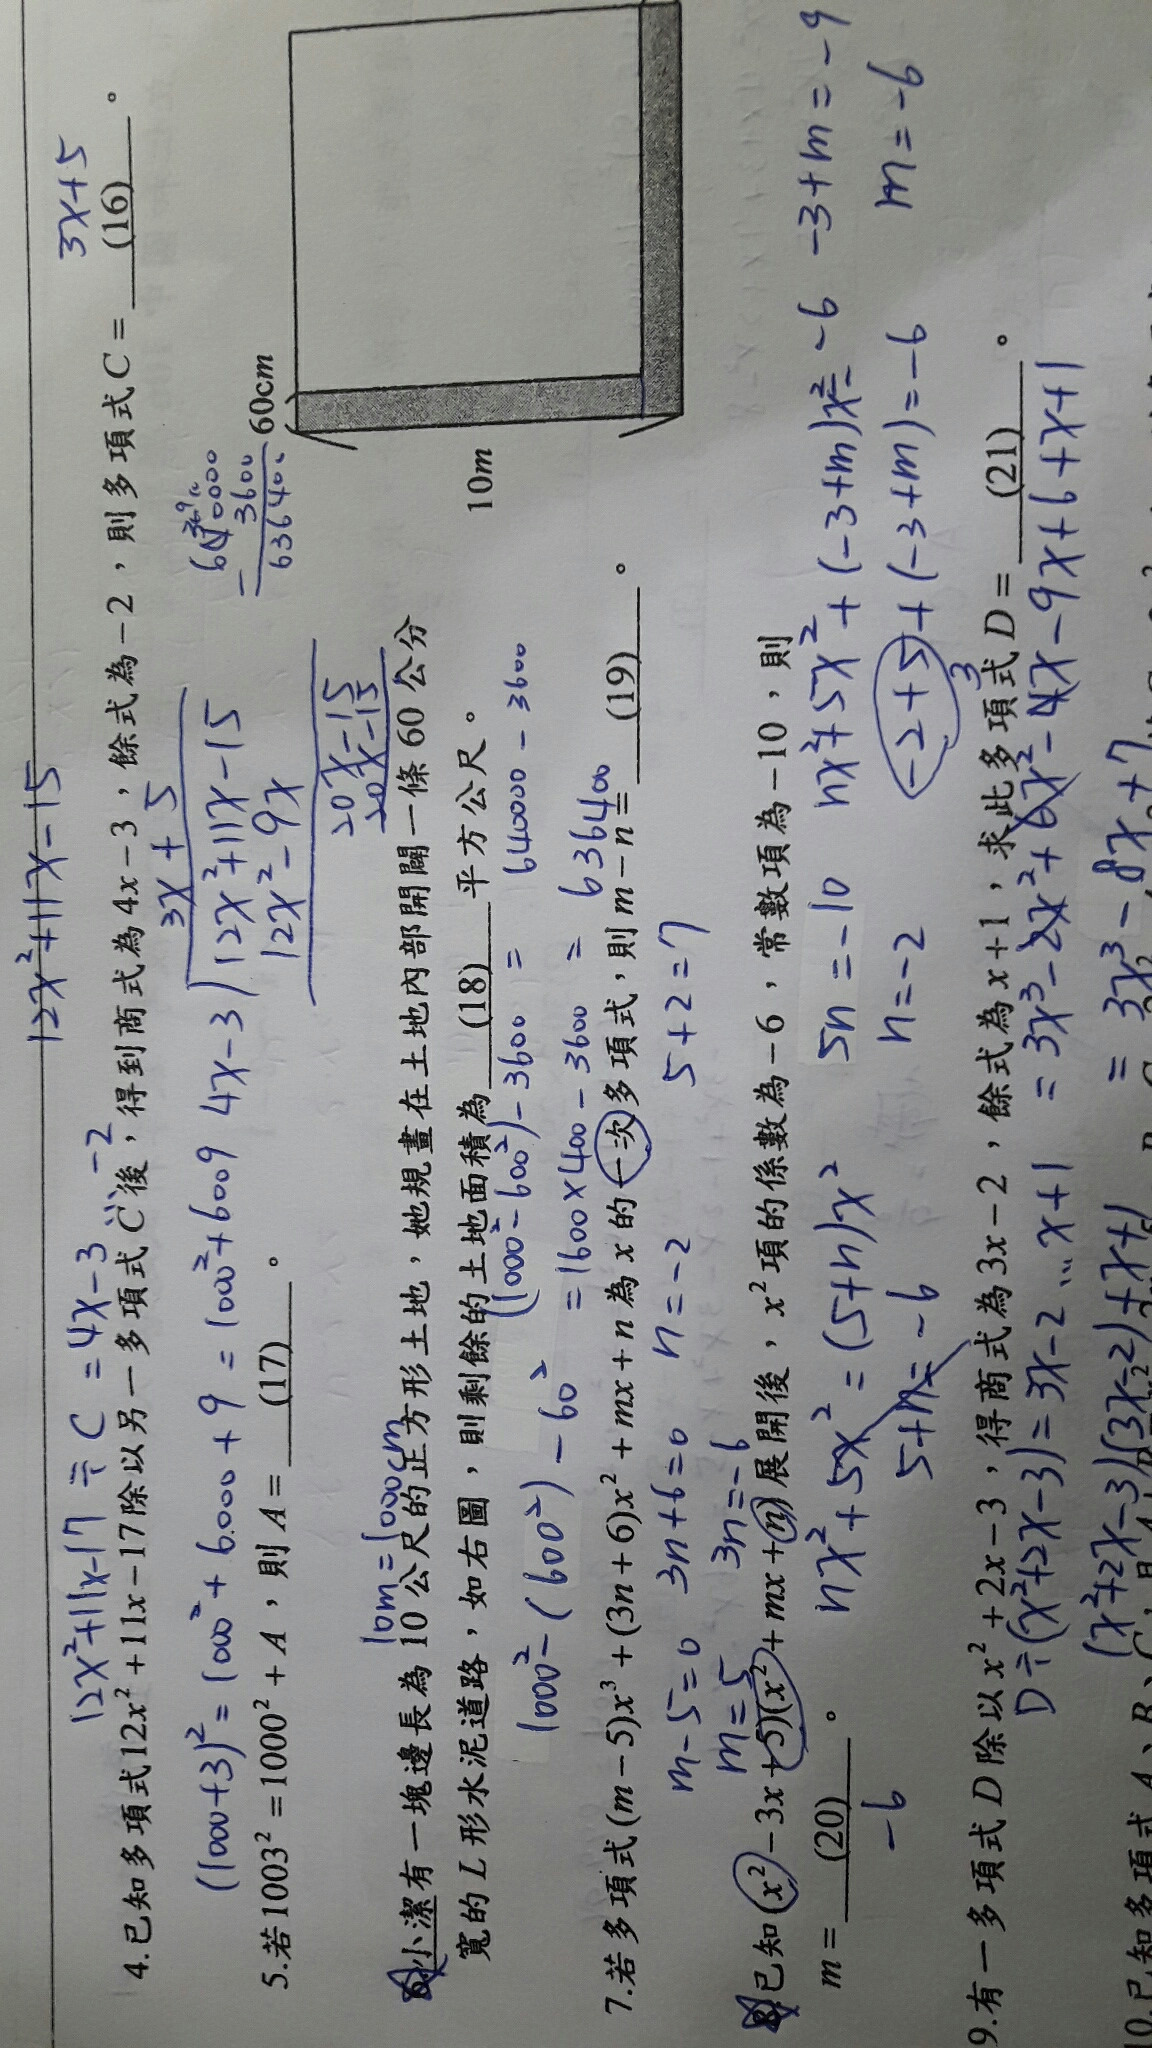 12x²+11x-15
12x²+11x-17 ÷ C = 4x-3 … -2
3x+5
4.已知多項式12x²+11x-17除以另一多項式C後，得到商式為4x-3，餘式為-2，則多項式C=　(16)　。
3x+5
4x-3
12x²+11x-15
12x²-9x
20x-15
20x-15
(1000+3)²=1000²+6000+9=1000²+6009
5.若1003²=1000²+A，則A=　(17)　。
640000
-3600
636400
10m=1000cm
6.小潔有一塊邊長為10公尺的正方形土地，她規畫在土地內部開闢一條60公分
寬的L形水泥道路，如右圖，則剩餘的土地面積為　(18)　平方公尺。
60cm
10m
1000²-(600²)-60²
(1000²-600²)-3600=640000-3600
=1600×400-3600=636400
7.若多項式(m-5)x³+(3n+6)x²+mx+n為x的一次多項式，則m-n=　(19)　。
m-5=0 3n+6=0 n=-2 5+2=7
m=5 3n=-6
8.已知(x²-3x+5)(x²+mx+n)展開後，x²項的係數為-6，常數項為-10，則
m=　(20)　。
-6
nx²+5x²=(5+n)x²
5+n=-6
5n=-10 nx²+5x²+(-3+m)x²=-6 -3+m=-9
n=-2 -2+5+(-3+m)=-6 m=-6
3
9.有一多項式D除以x²+2x-3，得商式為3x-2，餘式為x+1，求此多項式D=　(21)　。
D÷(x²+2x-3)=3x-2…x+1 =3x³-2x²+6x²-4x-9x+6+x+1
(x²+2x-3)(3x-2)+x+1 =3x³-8x+7
10.已知多項式A、B、C